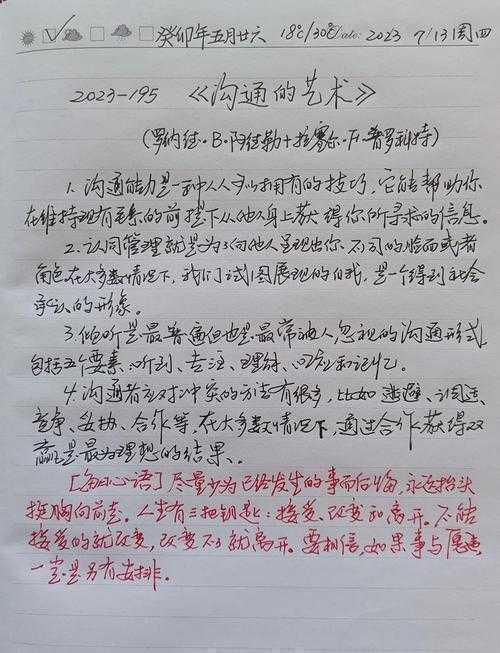 癸卯年五月廿六 18℃/30℃ Date: 2023 7/13 周四
2023-195 《沟通的艺术》
(罗纳德·B·阿德勒+拉塞尔·F·普罗科特)
1. 沟通能力是一种人人可以拥有的技巧,它能帮助你
在维持现有关系的前提下从他人身上获得你所寻求的信息。
2. 认同管理就是为了向他人呈现出你不同的脸面或者
角色,在大多数情况下,我们试图展现的自我,是一个得到社会
承认的形象。
3. 倾听是最普通但也是最常被人忽视的沟通形式,
包括五个要素:听到、专注、理解、回应和记忆。
4. 沟通者应对冲突的方法有很多,比如逃避、调适、
竞争、妥协、合作等,在大多数情况下,通过合作获得双
赢是最为理想的结果。
[每日心语] 尽量少为已经发生的事而后悔,永远抬头
挺胸向前走。人生有三把钥匙:接受、改变和离开。不能
接受的就改变,改变不了就离开。要相信,如果事与愿违
一定是另有安排。